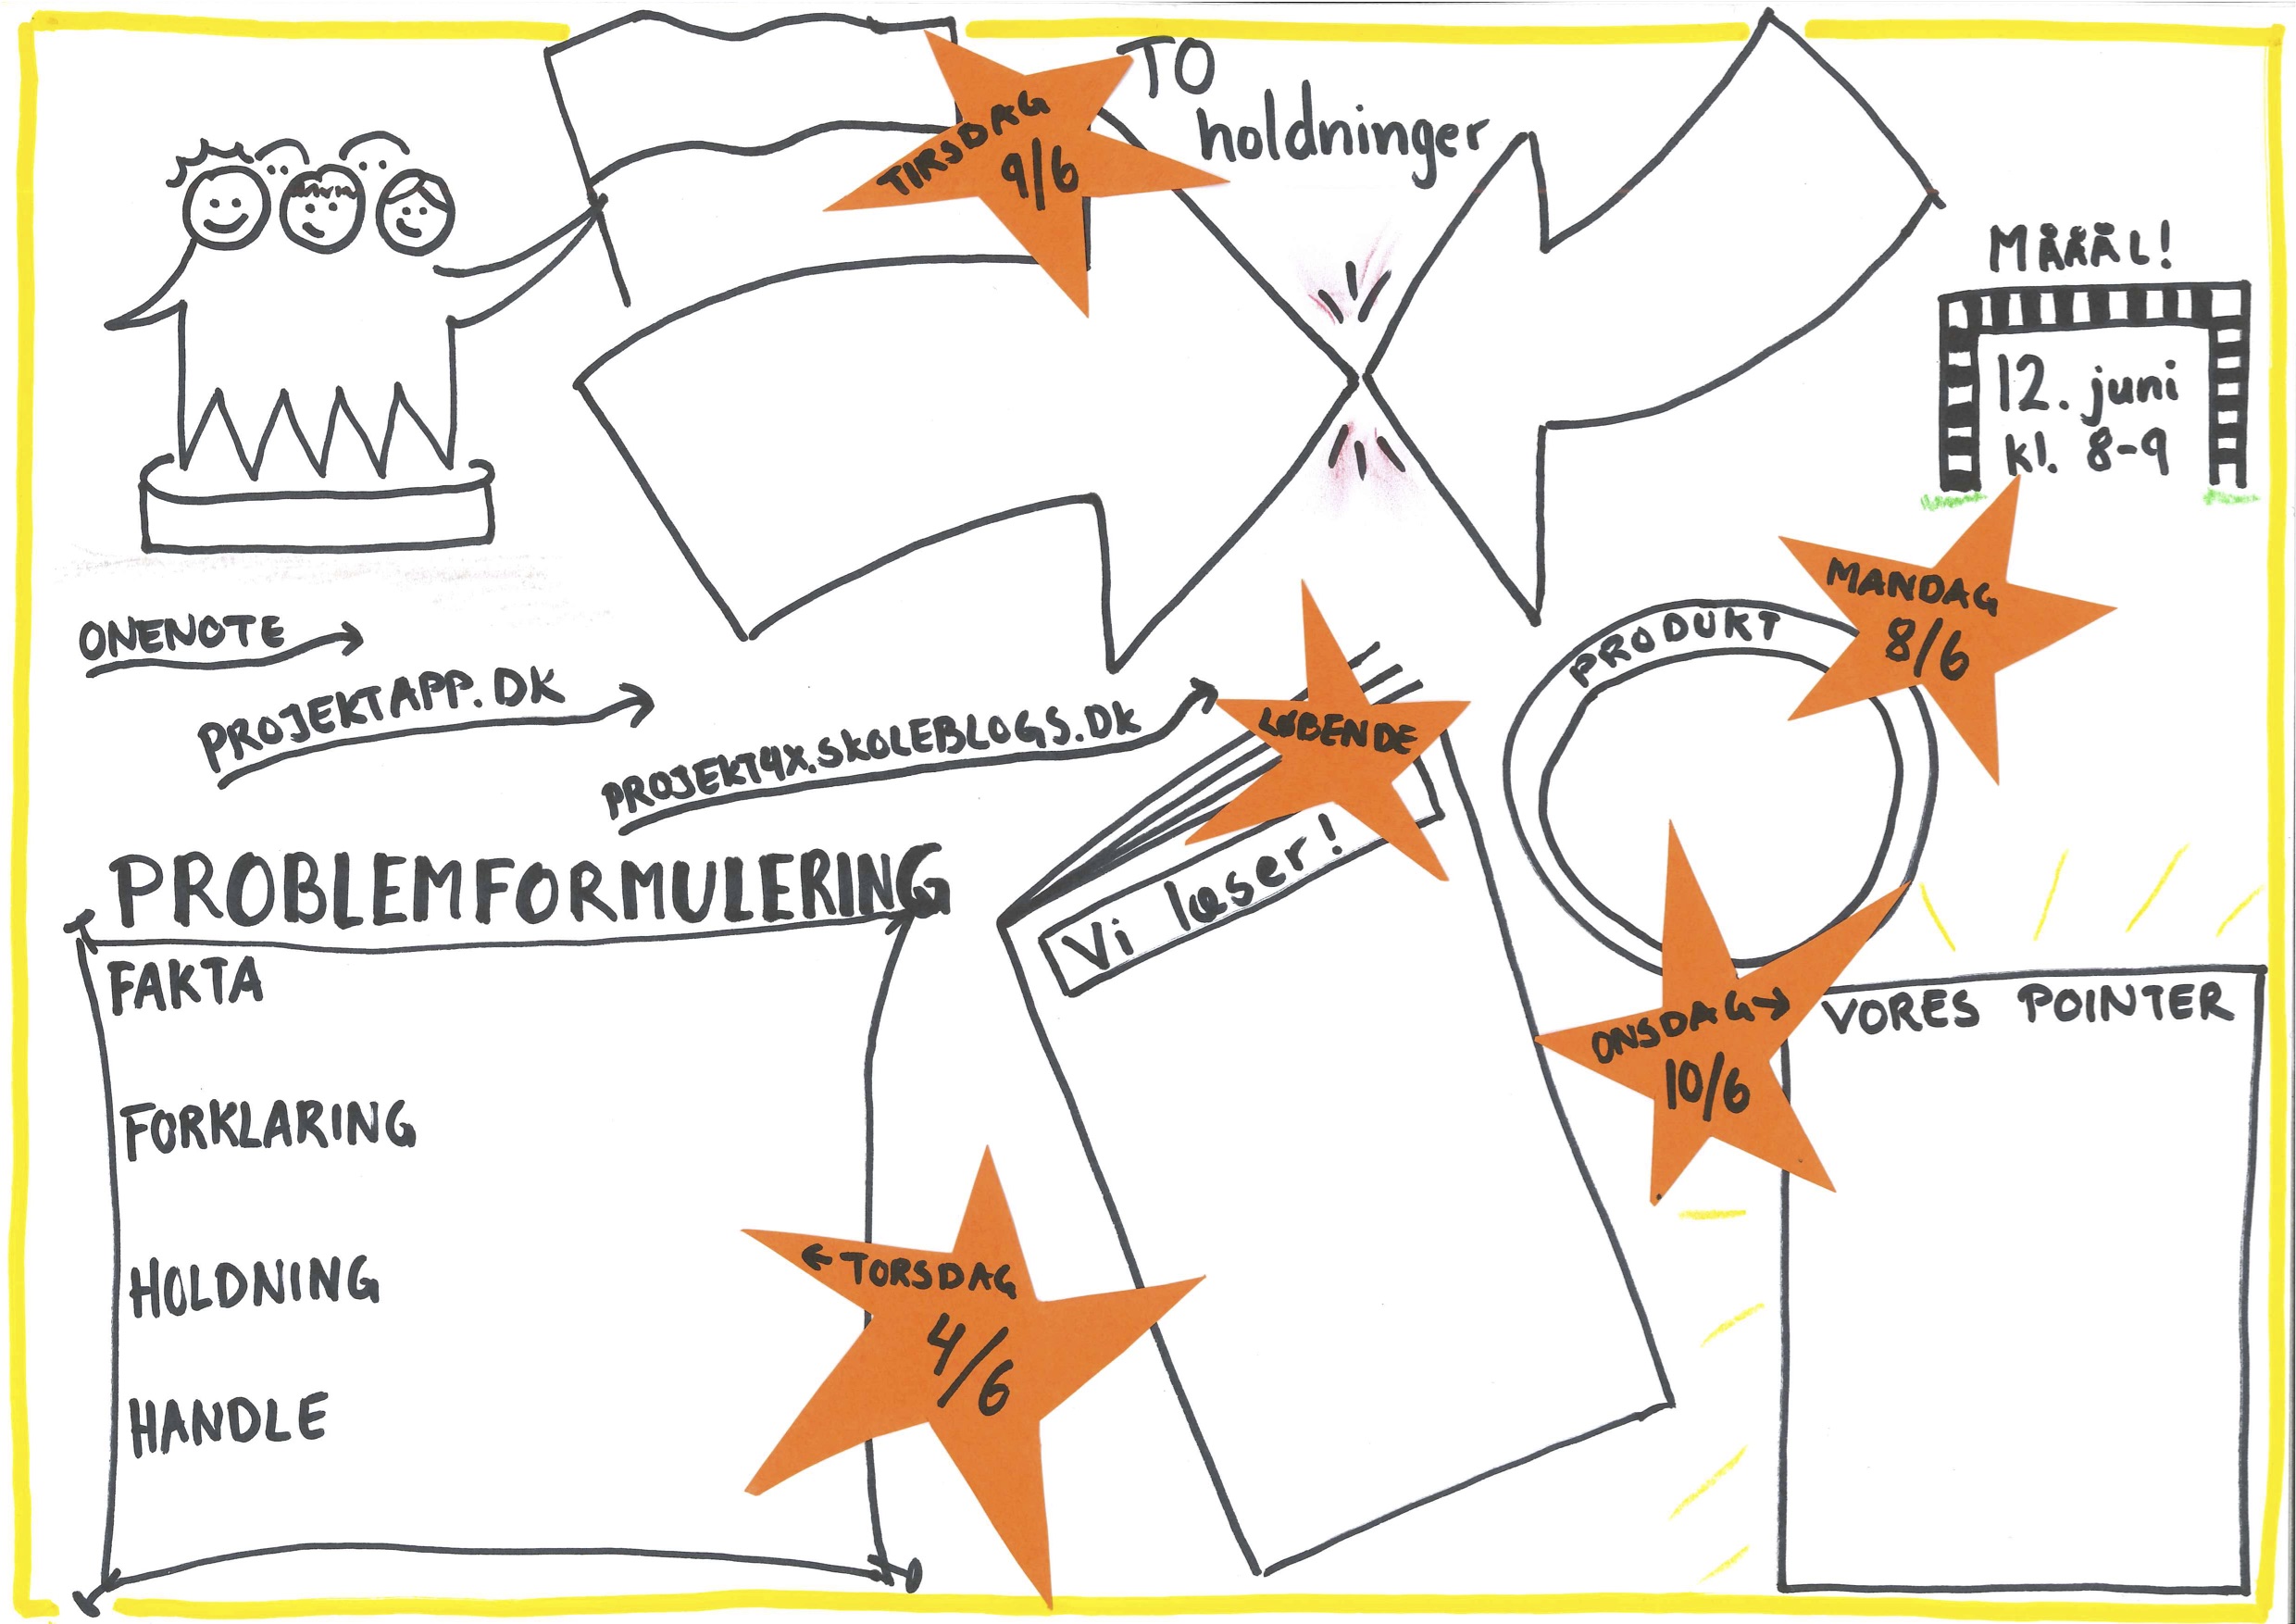 TO
holdninger
TIRSDAG
9/6
MÅÅÅL!
12. juni
kl. 8-9
MANDAG
8/6
PRODUKT
ONENOTE
PROJEKTAPP.DK
PROJEKT4X.SKOLEBLOGS.DK
LØBENDE
Vi læser!
PROBLEMFORMULERING
FAKTA
FORKLARING
HOLDNING
HANDLE
TORSDAG
4/6
ONSDAG
10/6
VORES POINTER